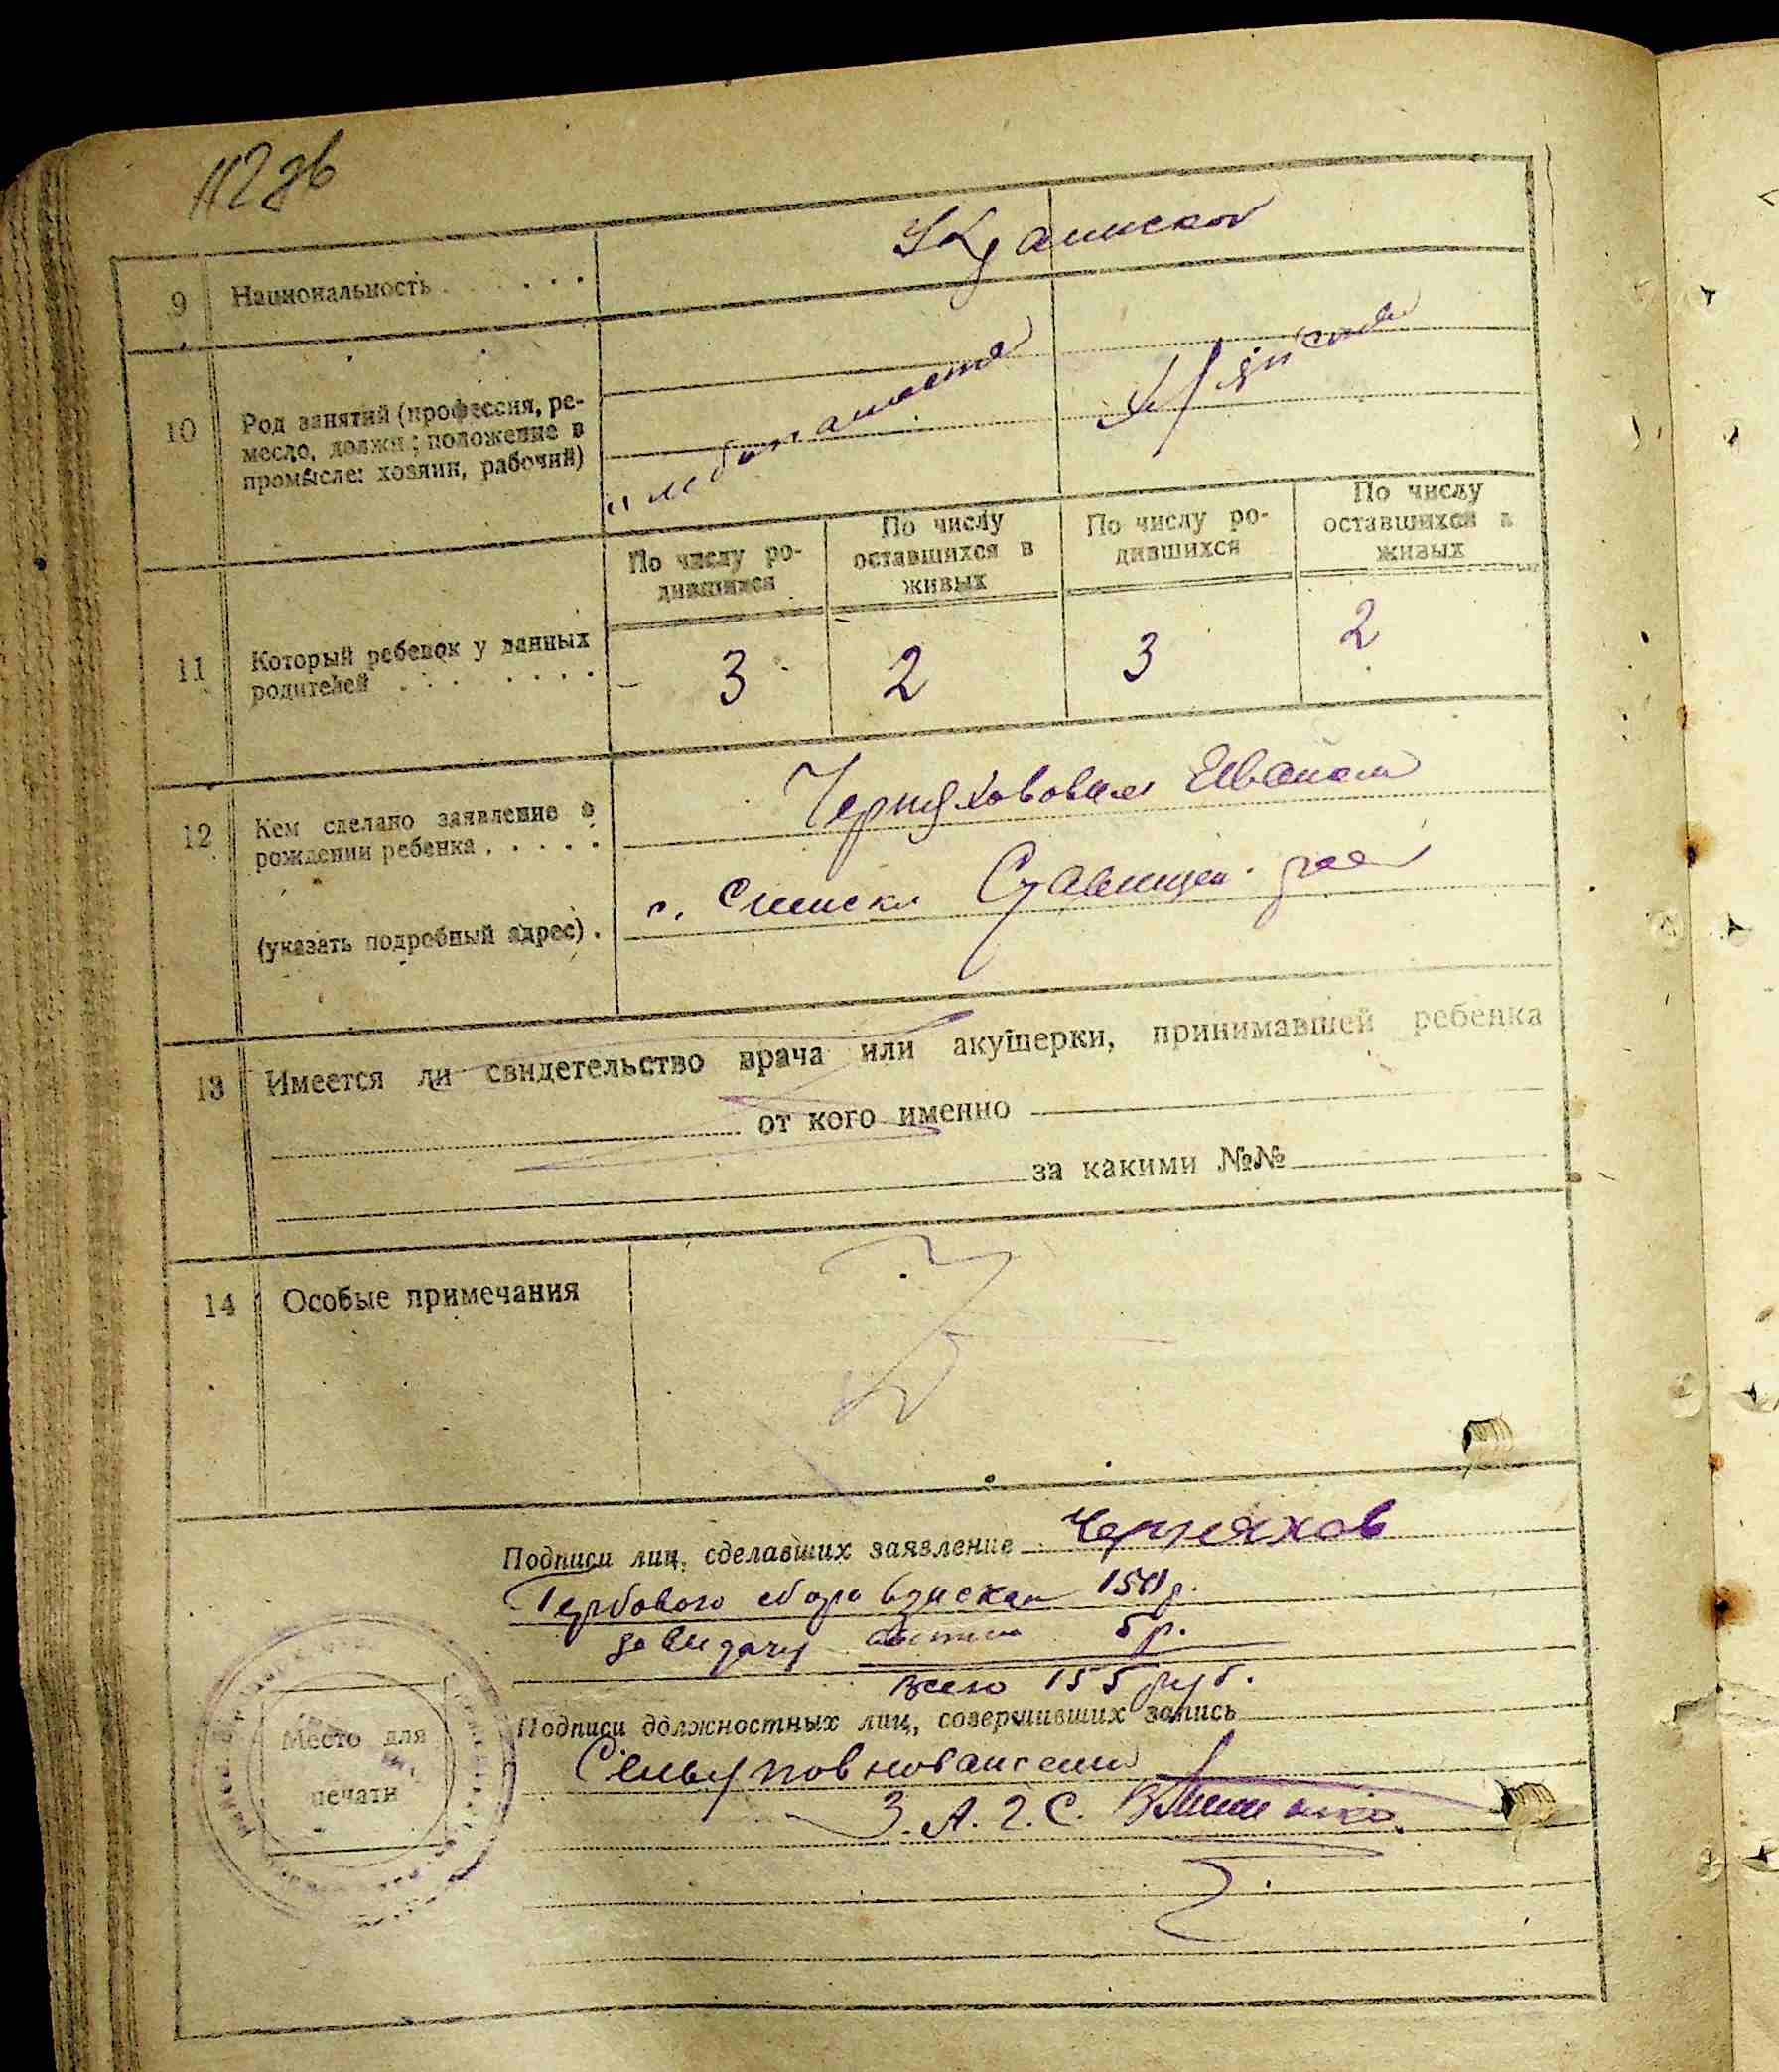 112 зв
9 Национальность . . . . . . Украинской
10 Род занятий (профессия, ре-
месло, должн; положение в
промысле: хозяин, рабочий)
По числу ро-
дившихся
По числу
оставшихся в
живых
По числу ро-
дившихся
По числу
оставшихся в
живых
11 Который ребенок у данных
родителей . . . . . . . 3 2 3 2
12 Кем сделано заявление о
рождении ребенка . . . . . Черняхововим Иваном
(указать подробный адрес) . с.
13 Имеется ли свидетельство врача или акушерки, принимавшей ребенка
от кого именно
за какими №№
14 Особые примечания
Подписи лиц, сделавших заявление Черняхов
Гербового сбора взискан 150 р.
за видачу 5 р.
всего 155 руб.
Место для
печати
Подписи должностных лиц, совершивших запись
З. А. Г. С.